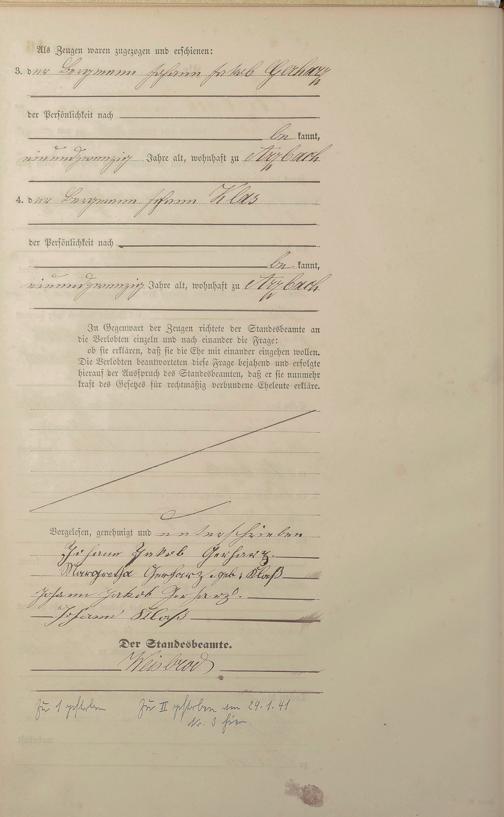 Als Zeugen waren zugezogen und erschienen:
3. der Bergmann Johann Jakob Gerharz
der Persönlichkeit nach
be kannt,
einundzwanzig Jahre alt, wohnhaft zu Atzbach
4. der Bergmann Johann Klas
der Persönlichkeit nach
be kannt,
Jahre alt, wohnhaft zu Atzbach
In Gegenwart der Zeugen richtete der Standesbeamte an
die Verlobten einzeln und nach einander die Frage:
ob sie erklären, daß sie die Ehe mit einander eingehen wollen.
Die Verlobten beantworteten diese Frage bejahend und erfolgte
hierauf der Ausspruch des Standesbeamten, daß er sie nunmehr
kraft des Gesetzes für rechtmäßig verbundene Eheleute erkläre.
Vorgelesen, genehmigt und unterschrieben
Johann Jakob Gerharz.
Margretha Gerharz geb. Klaß
Johann Jakob Gerharz.
Johann Klaß
Der Standesbeamte.
Weisbrod
Zu I gestorben Zu II gestorben am 29.1.41
No. 3 hier